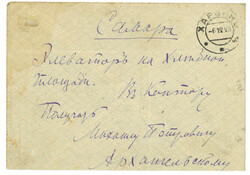 Самара
Элеваторъ на Хлѣбной
площади.
Въ Контору
Получ.
Михаилу Петровичу
Архангельскому